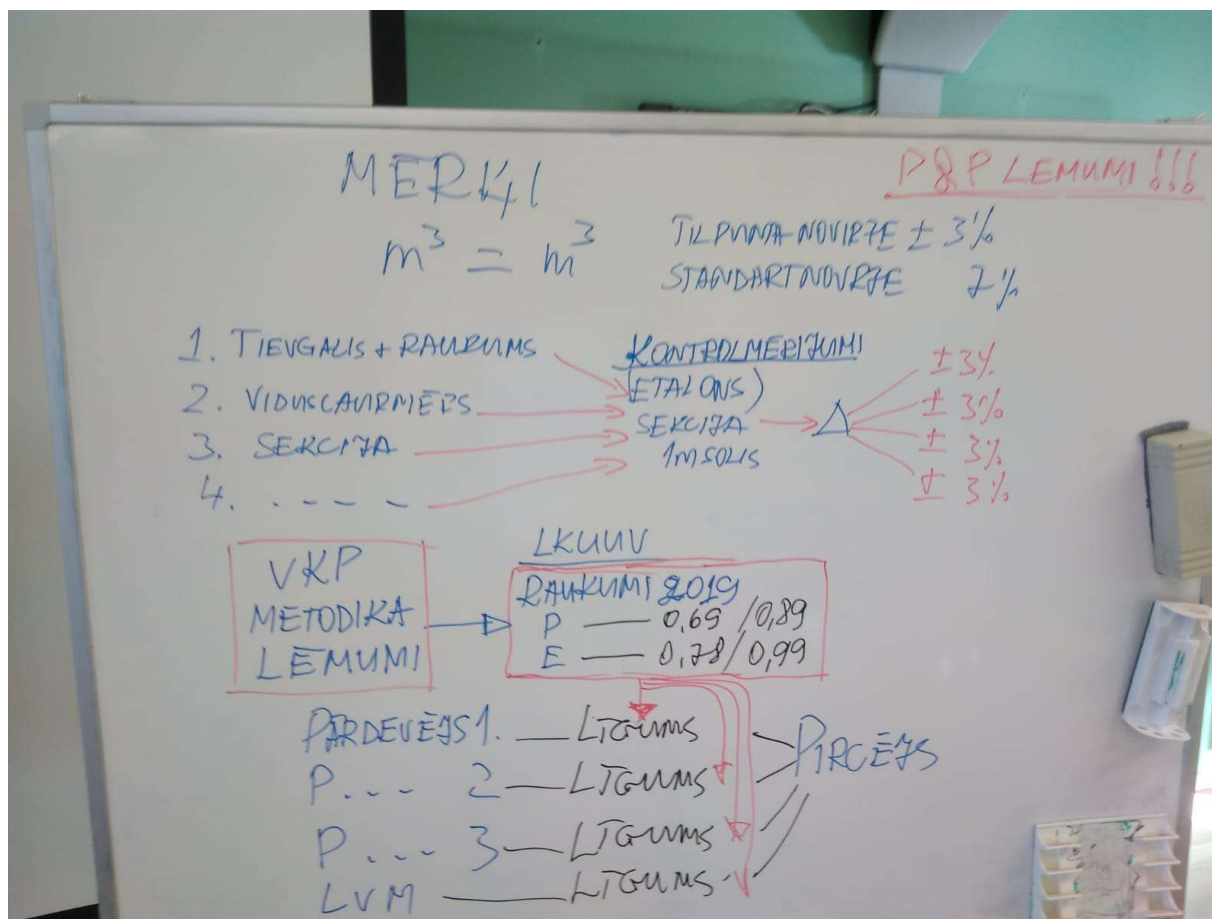 MERĶI
P&P LEMUMI !!!
m³ = m³
TILPUMA NOVIRZE ± 3%
STANDARTNOVIRZE 7%
1. TIEVGALIS + RAUKUMS
2. VIDUSCAURMĒRS
3. SEKCIJA
4. . - - -
KONTROLMERIJUMI
(ETALONS)
SEKCIJA
1m SOLIS
Δ
± 3%
± 3%
± 3%
± 3%
VKP
METODIKA
LĒMUMI
LKUUV
RAUKUMI 2019
P — 0,69 / 0,89
E — 0,78 / 0,99
PĀRDEVĒJS 1. — LĪGUMS
P... 2 — LĪGUMS
P... 3 — LĪGUMS
LVM — LĪGUMS
PIRCĒJS